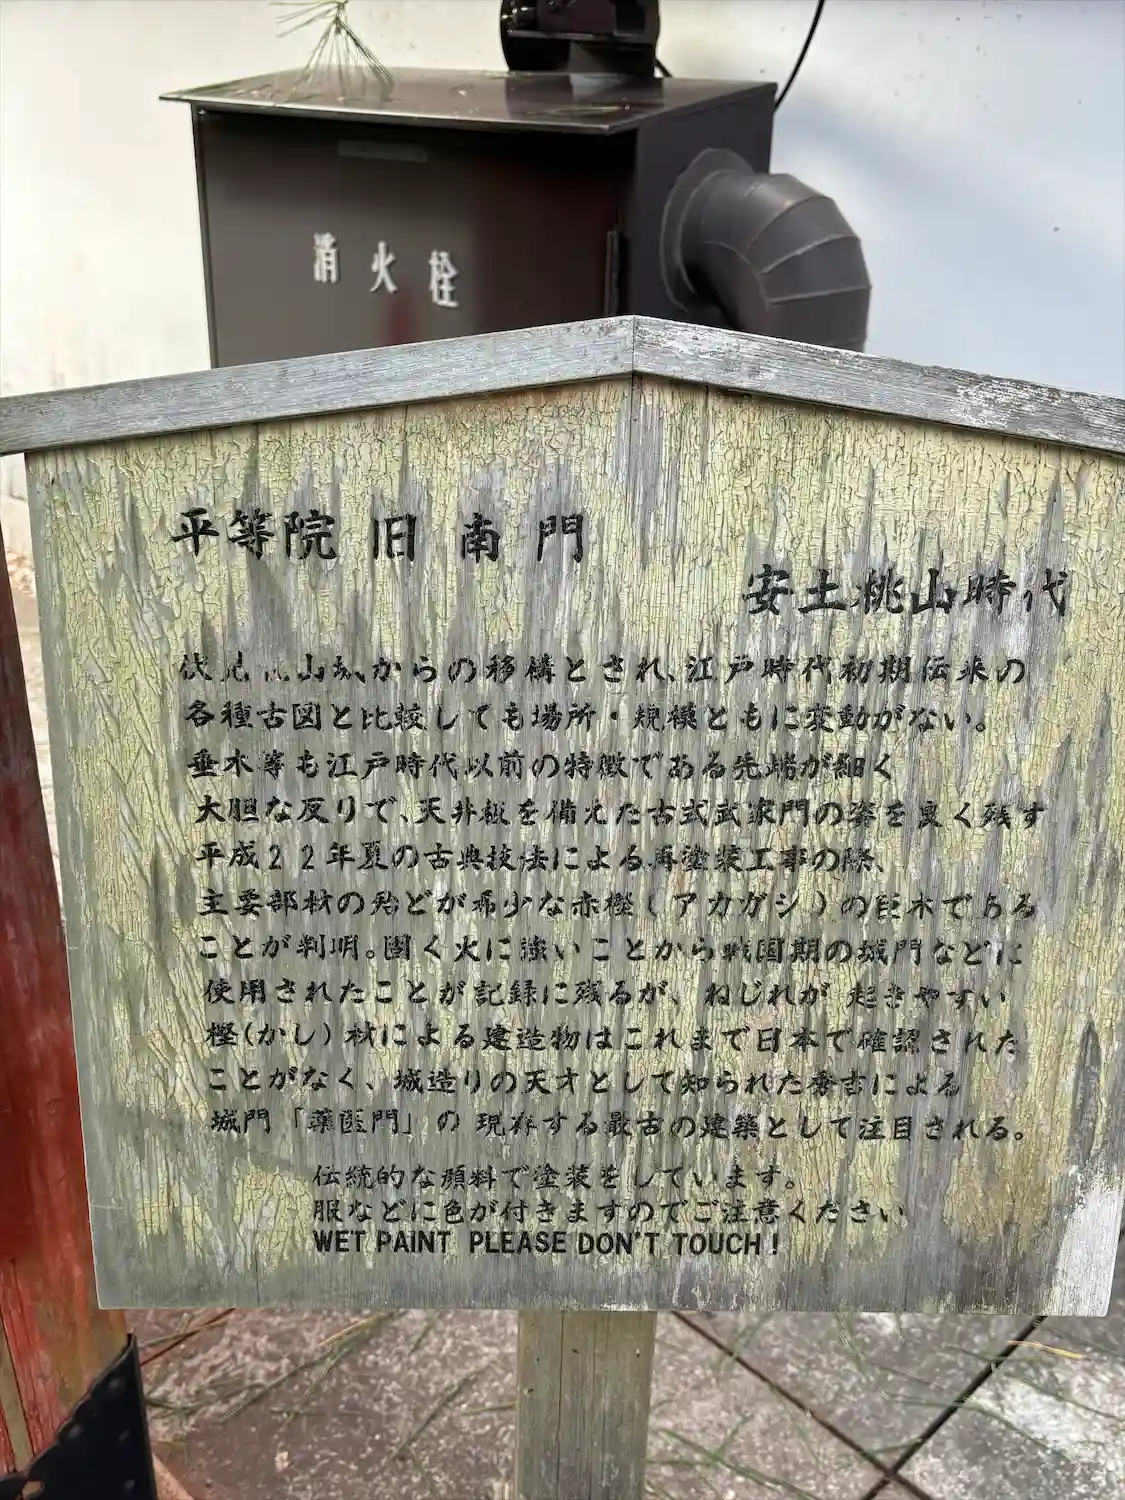 消火栓
平等院 旧 南 門
安土桃山時代
伏見桃山城からの移構とされ、江戸時代初期伝来の
各種古図と比較しても場所・規模ともに変動がない。
垂木等も江戸時代以前の特徴である先端が細く
大胆な反りで、天井板を備えた古式武家門の姿を良く残す
平成22年夏の古典技法による再塗装工事の際、
主要部材の殆どが希少な赤樫(アカガシ)の巨木である
ことが判明。固く火に強いことから戦国期の城門などに
使用されたことが記録に残るが、ねじれが 起きやすい
樫(かし)材による建造物はこれまで日本で確認された
ことがなく、城造りの天才として知られた秀吉による
城門「薬医門」の 現存する最古の建築として注目される。
伝統的な顔料で塗装をしています。
服などに色が付きますのでご注意ください
WET PAINT PLEASE DON'T TOUCH!